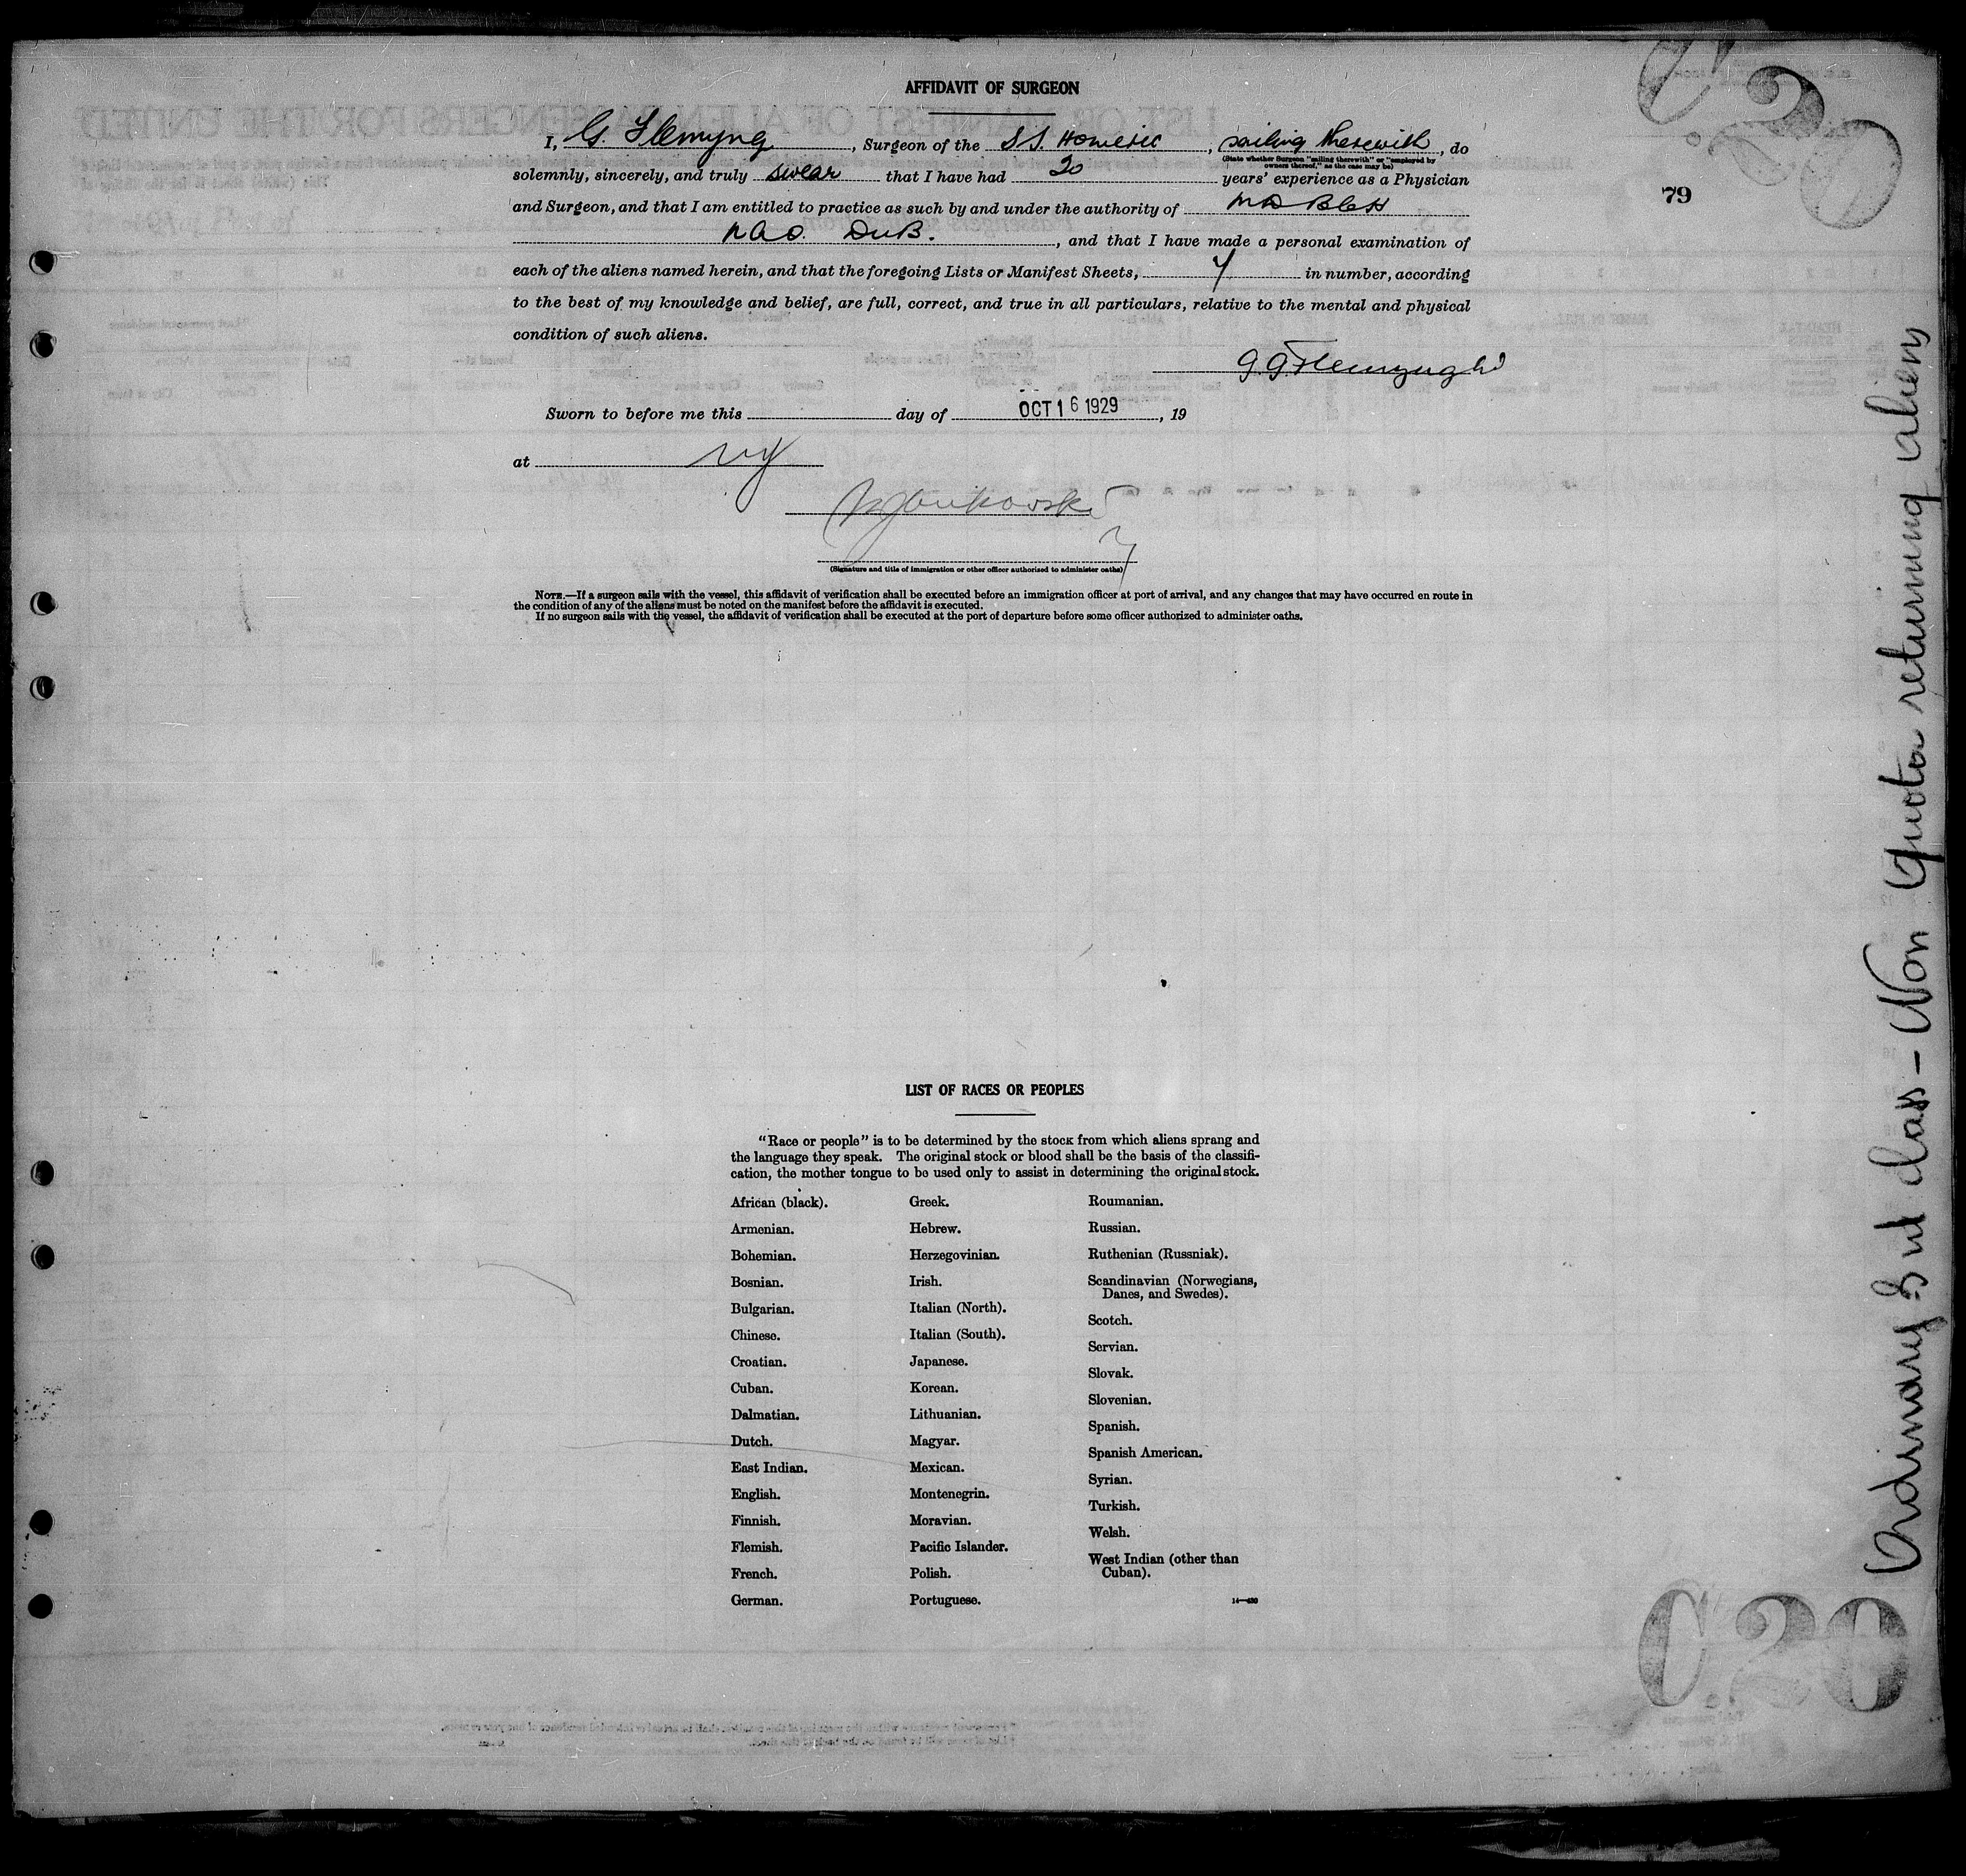 AFFIDAVIT OF SURGEON
I, G. Flemyng, Surgeon of the S.S. Homeric, sailing therewith, do
(State whether Surgeon "sailing therewith" or "employed by
owners thereof," as the case may be)
solemnly, sincerely, and truly swear that I have had 20 years' experience as a Physician
79
and Surgeon, and that I am entitled to practice as such by and under the authority of
DUB., and that I have made a personal examination of
each of the aliens named herein, and that the foregoing Lists or Manifest Sheets, in number, according
to the best of my knowledge and belief, are full, correct, and true in all particulars, relative to the mental and physical
condition of such aliens.
Sworn to before me this day of OCT 16 1929, 19
at NY
(Signature and title of immigration or other officer authorized to administer oaths)
NOTE.—If a surgeon sails with the vessel, this affidavit of verification shall be executed before an immigration officer at port of arrival, and any changes that may have occurred en route in
the condition of any of the aliens must be noted on the manifest before the affidavit is executed.
If no surgeon sails with the vessel, the affidavit of verification shall be executed at the port of departure before some officer authorized to administer oaths.
LIST OF RACES OR PEOPLES
"Race or people" is to be determined by the stock from which aliens sprang and
the language they speak. The original stock or blood shall be the basis of the classifi-
cation, the mother tongue to be used only to assist in determining the original stock.
African (black).
Armenian.
Bohemian.
Bosnian.
Bulgarian.
Chinese.
Croatian.
Cuban.
Dalmatian.
Dutch.
East Indian.
English.
Finnish.
Flemish.
French.
German.
Greek.
Hebrew.
Herzegovinian.
Irish.
Italian (North).
Italian (South).
Japanese.
Korean.
Lithuanian.
Magyar.
Mexican.
Montenegrin.
Moravian.
Pacific Islander.
Polish.
Portuguese.
Roumanian.
Russian.
Ruthenian (Russniak).
Scandinavian (Norwegians,
Danes, and Swedes).
Scotch.
Servian.
Slovak.
Slovenian.
Spanish.
Spanish American.
Syrian.
Turkish.
Welsh.
West Indian (other than
Cuban).
C20
C20
Ordinary 3rd class - Non Quota returning aliens